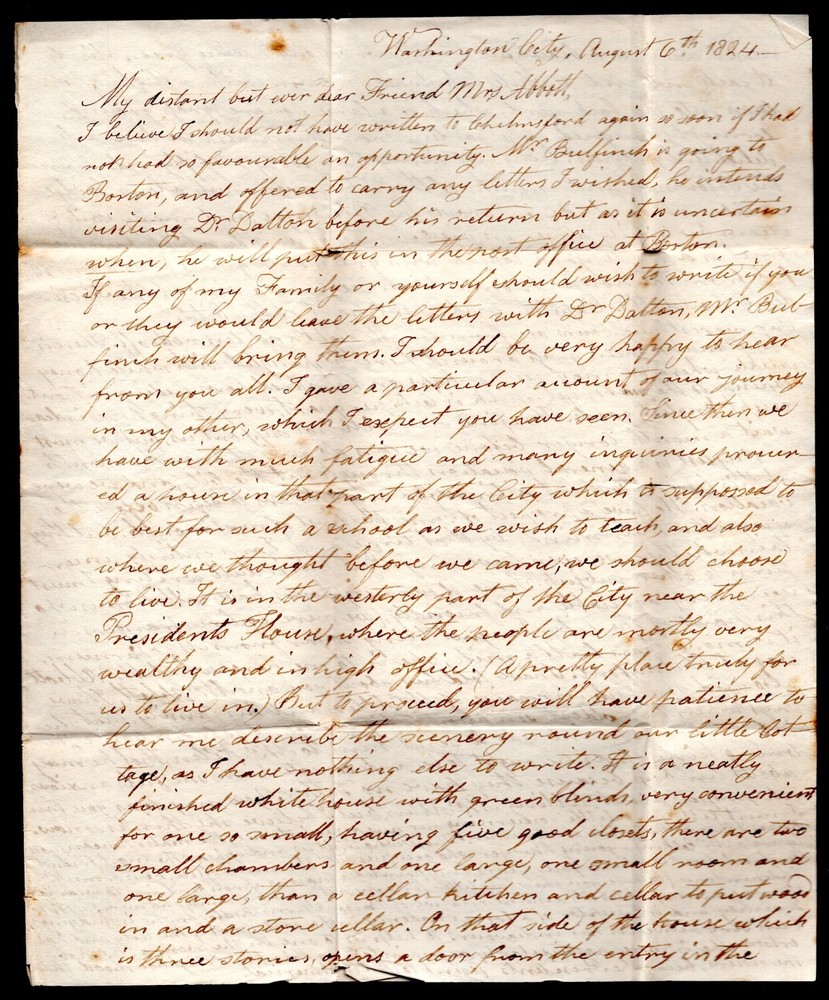 Washington City, August 6th 1824.—
My distant but ever dear Friend Mrs Abbott,
I believe I should not have written to Chelmsford again so soon if I had
not had so favourable an opportunity. Mr Bulfinch is going to
Boston, and offered to carry any letters I wished, he intends
visiting Dr Dalton before his return but as it is uncertain
when, he will put this in the post office at Boston.
If any of my Family or yourself should wish to write if you
or they would leave the letters with Dr Dalton, Mr Bul-
finch will bring them. I should be very happy to hear
from you all. I gave a particular account of our journey
in my other, which I expect you have seen. Since then we
have with much fatigue and many inquiries procur-
ed a house in that part of the City which is supposed to
be best for such a school as we wish to teach, and also
where we thought before we came, we should choose
to live. It is in the westerly part of the City near the
Presidents House, where the people are mostly very
wealthy and in high office. (A pretty place truly for
us to live in.) But to proceed, you will have patience to
hear me describe the scenery round our little Cot
tage, as I have nothing else to write. It is a neatly
finished white house with green blinds, very convenient
for one so small, having five good closets, there are two
small chambers and one large, one small room and
one large, than a cellar kitchen and cellar to put wood
in and a store cellar. On that side of the house which
is three stories, opens a door from the entry in the